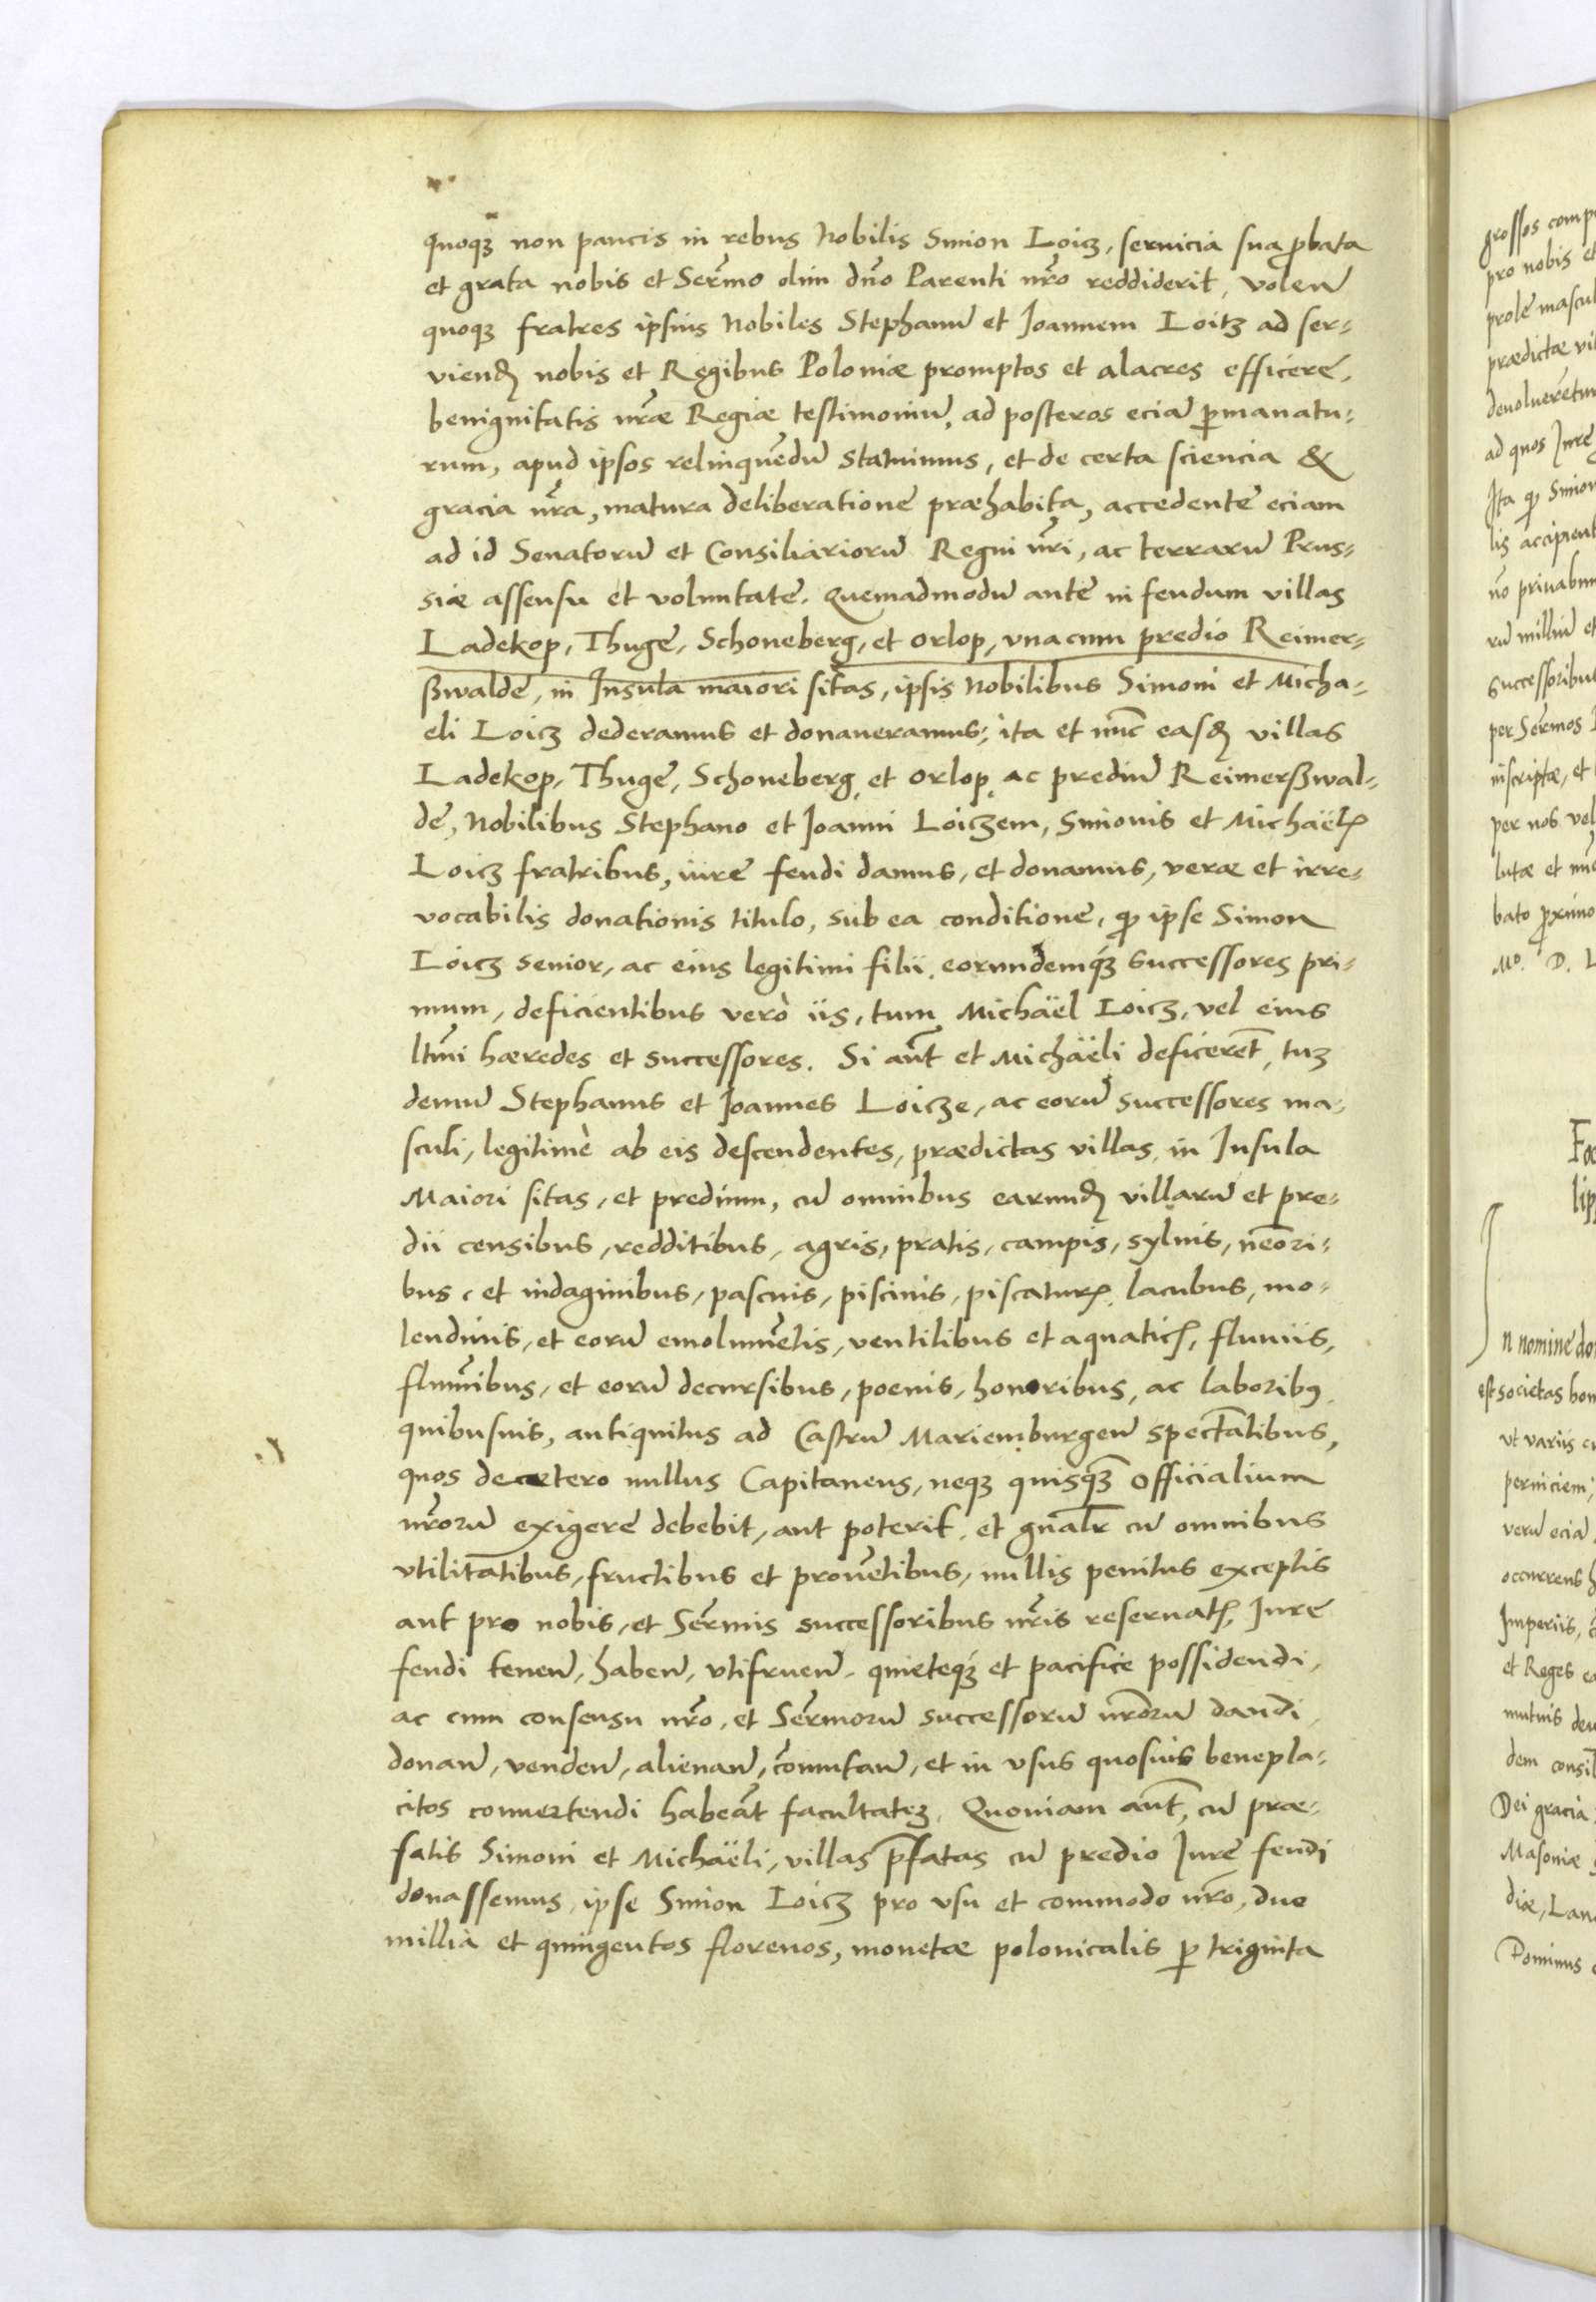 quoqȝ non paucis in rebus Nobilis Simon Loicz, seruicia sua ꝓbata
et grata nobis et Serm̃o olim dño Parenti nr̃o reddiderit, Volen̄
quoqȝ fratres ipsius Nobiles Stephanū et Joannem Loitz ad ser⸗
viendꝭ nobis et Regibus Poloniæ promptos et alacres efficere,
benignitatis nr̃æ Regiæ testimoniū, ad posteros eciā ꝑmanatu⸗
rum, apud ipsos relinquẽdū statuimus, et de certa sciencia &
gracia nr̃a, matura deliberatione præhabita, accedente eciam
ad id Senatorū et Consiliariorū Regni nr̃i, ac terrarū Prus⸗
siæ assensu et voluntate. Quemadmodū ante in feudum villas
Ladekop, Thuge, Schoneberg, et Orlop, vnacum predio Reimer⸗
ßwalde, in Insula maiori sitas, ipsis Nobilibus Simoni et Micha⸗
eli Loicz dederamus et donaueramus; ita et nũc easdꝭ villas
Ladekop, Thuge, Schoneberg, et Orlop, ac prediū Reimerßwal⸗
de, Nobilibus Stephano et Joanni Loiczem, Simonis et Michaëlꝭ
Loicz fratribus, iure feudi damus, et donamus, veræ et irre⸗
vocabilis donationis titulo, sub ea conditione, qͦ ipse Simon
Loicz senior, ac eius legitimi filii, eorundemqȝ successores pri⸗
mum, deficientibus verò iis, tum Michaël Loicz, vel eius
ltim̃i hæredes et successores. Si aũt et Michaëli deficerẽt, tuȝ
demū Stephanus et Joannes Loicze, ac eorū successores ma⸗
sculi, legitimè ab eis descendentes, prædictas villas, in Insula
Maiori sitas, et predium, cū omnibus earundꝭ villarū et pre⸗
dii censibus, redditibus, agris, pratis, campis, sylvis, nẽori⸗
bus, et indaginibus, pascuis, piscinis, piscaturꝭ, lacubus, mo⸗
lendinis, et eorū emolumẽtis, ventilibus et aquaticꝭ, fluuiis,
flumĩnibus, et eorū decursibus, poenis, honoribus, ac laboribꝰ
quibusuis, antiquitus ad Castrū Mariemburgen̄ spectãtibus,
quos de cætero nullus Capitaneus, neqȝ quisqȝ̃ Officialium
nr̃orū exigere debebit, aut poterit, et gñalr̃ cū omnibus
vtilitãtibus, fructibus et prouẽtibus, nullis penitus exceptis
aut pro nobis, et Serm̃is successoribus nr̃is reseruatꝭ, Jure
feudi tenen̄, haben̄, vtifruen̄, quieteqȝ et pacifice possidendi,
ac cum consensu nr̃o, et Serm̃orū successorū nr̃orū dandi,
donan̄, venden̄, alienan̄, cõmutan̄, et in vsus quosuis benepla⸗
citos conuertendi habeãt facultateȝ. Quoniam aũt, cū præ⸗
fatis Simoni et Michaëli, villas p̃fatas cū predio Jure feudi
donassemus, ipse Simon Loicz pro vsu et commodo nr̃o, duo
millia et quingentos florenos, monetæ polonicalis ꝑ triginta

grossos comp
pro nobis et
prole mascul
prædictæ vil
deuoluerẽtur
ad quos Jure
Ita qͦ Simon
lis accipient
nõ priuabun
rū milliū et
successoribus
per Serm̃os
inscriptæ, et
per nos vel
lutæ et nũc
bato ꝓximo
Mº. D. L

Fœ
lip
In nomine do
est societas hom
vt variis cu
perniciem,
verū eciā
occurrens h
Imperiis, c
et Reges ea
mutuis deu
dem consil
Dei gracia
Masoniæ
diæ, Lan
Dominus